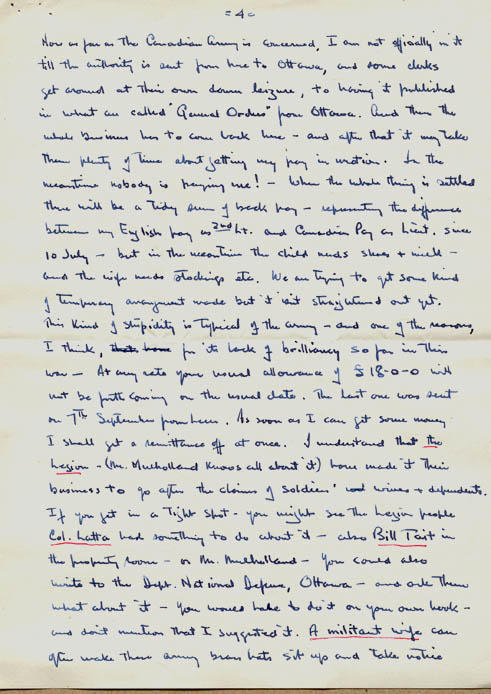 = 4 =
Now as far as the Canadian Army is concerned, I am not officially in it
till the authority is sent from here to Ottawa, and some clerks
get around at their own damn leizure, to having it published
in what are called "General Orders" from Ottawa. And then the
whole business has to come back here - and after that it may take
them plenty of time about getting my pay in motion. In the
meantime nobody is paying me! - When the whole thing is settled
there will be a tidy sum of back pay - representing the difference
between my English pay as 2nd Lt. and Canadian Pay as Lieut. since
10 July - but in the meantime the child needs shoes + milk -
and the wife needs stockings etc. We are trying to get some kind
of temporary arrangement made but it isn't straightened out yet.
This kind of stupidity is typical of the army - and one of the reasons,
I think, for its lack of brilliancy so far in this
war - At any rate your usual allowance of $ 18-0-0 will
not be forthcoming on the usual date. The last one was sent
on 7th September from here. As soon as I can get some money
I shall get a remittance off at once. I understand that the
Legion - (Mr. Mulholland knows all about it) have made it their
business to go after the claims of soldiers' wives + dependents.
If you get in a tight spot - you might see the Legion people
Col. Latta had something to do about it - also Bill Tait in
the property room - or Mr. Mulholland - You could also
write to the Dept. National Defence, Ottawa - and ask them
what about it - You would have to do it on your own hook -
and don't mention that I suggested it. A militant wife can
often make those army brass hats sit up and take notice